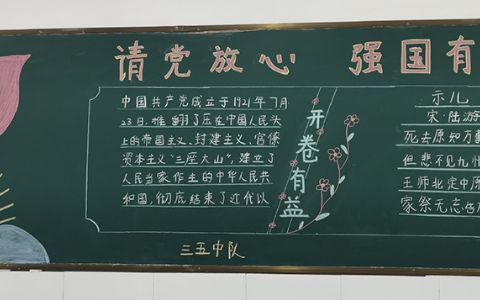 请党放心 强国有
中国共产党成立于1921年7月
23日,推翻了压在中国人民头
上的帝国主义、封建主义、官僚
资本主义“三座大山”,建立了
人民当家作主的中华人民共
和国,彻底结束了近代以
开卷有益
示儿
宋·陆游
死去原知万
但悲不见九州
王师北定中原
家祭无忘告
三五中队